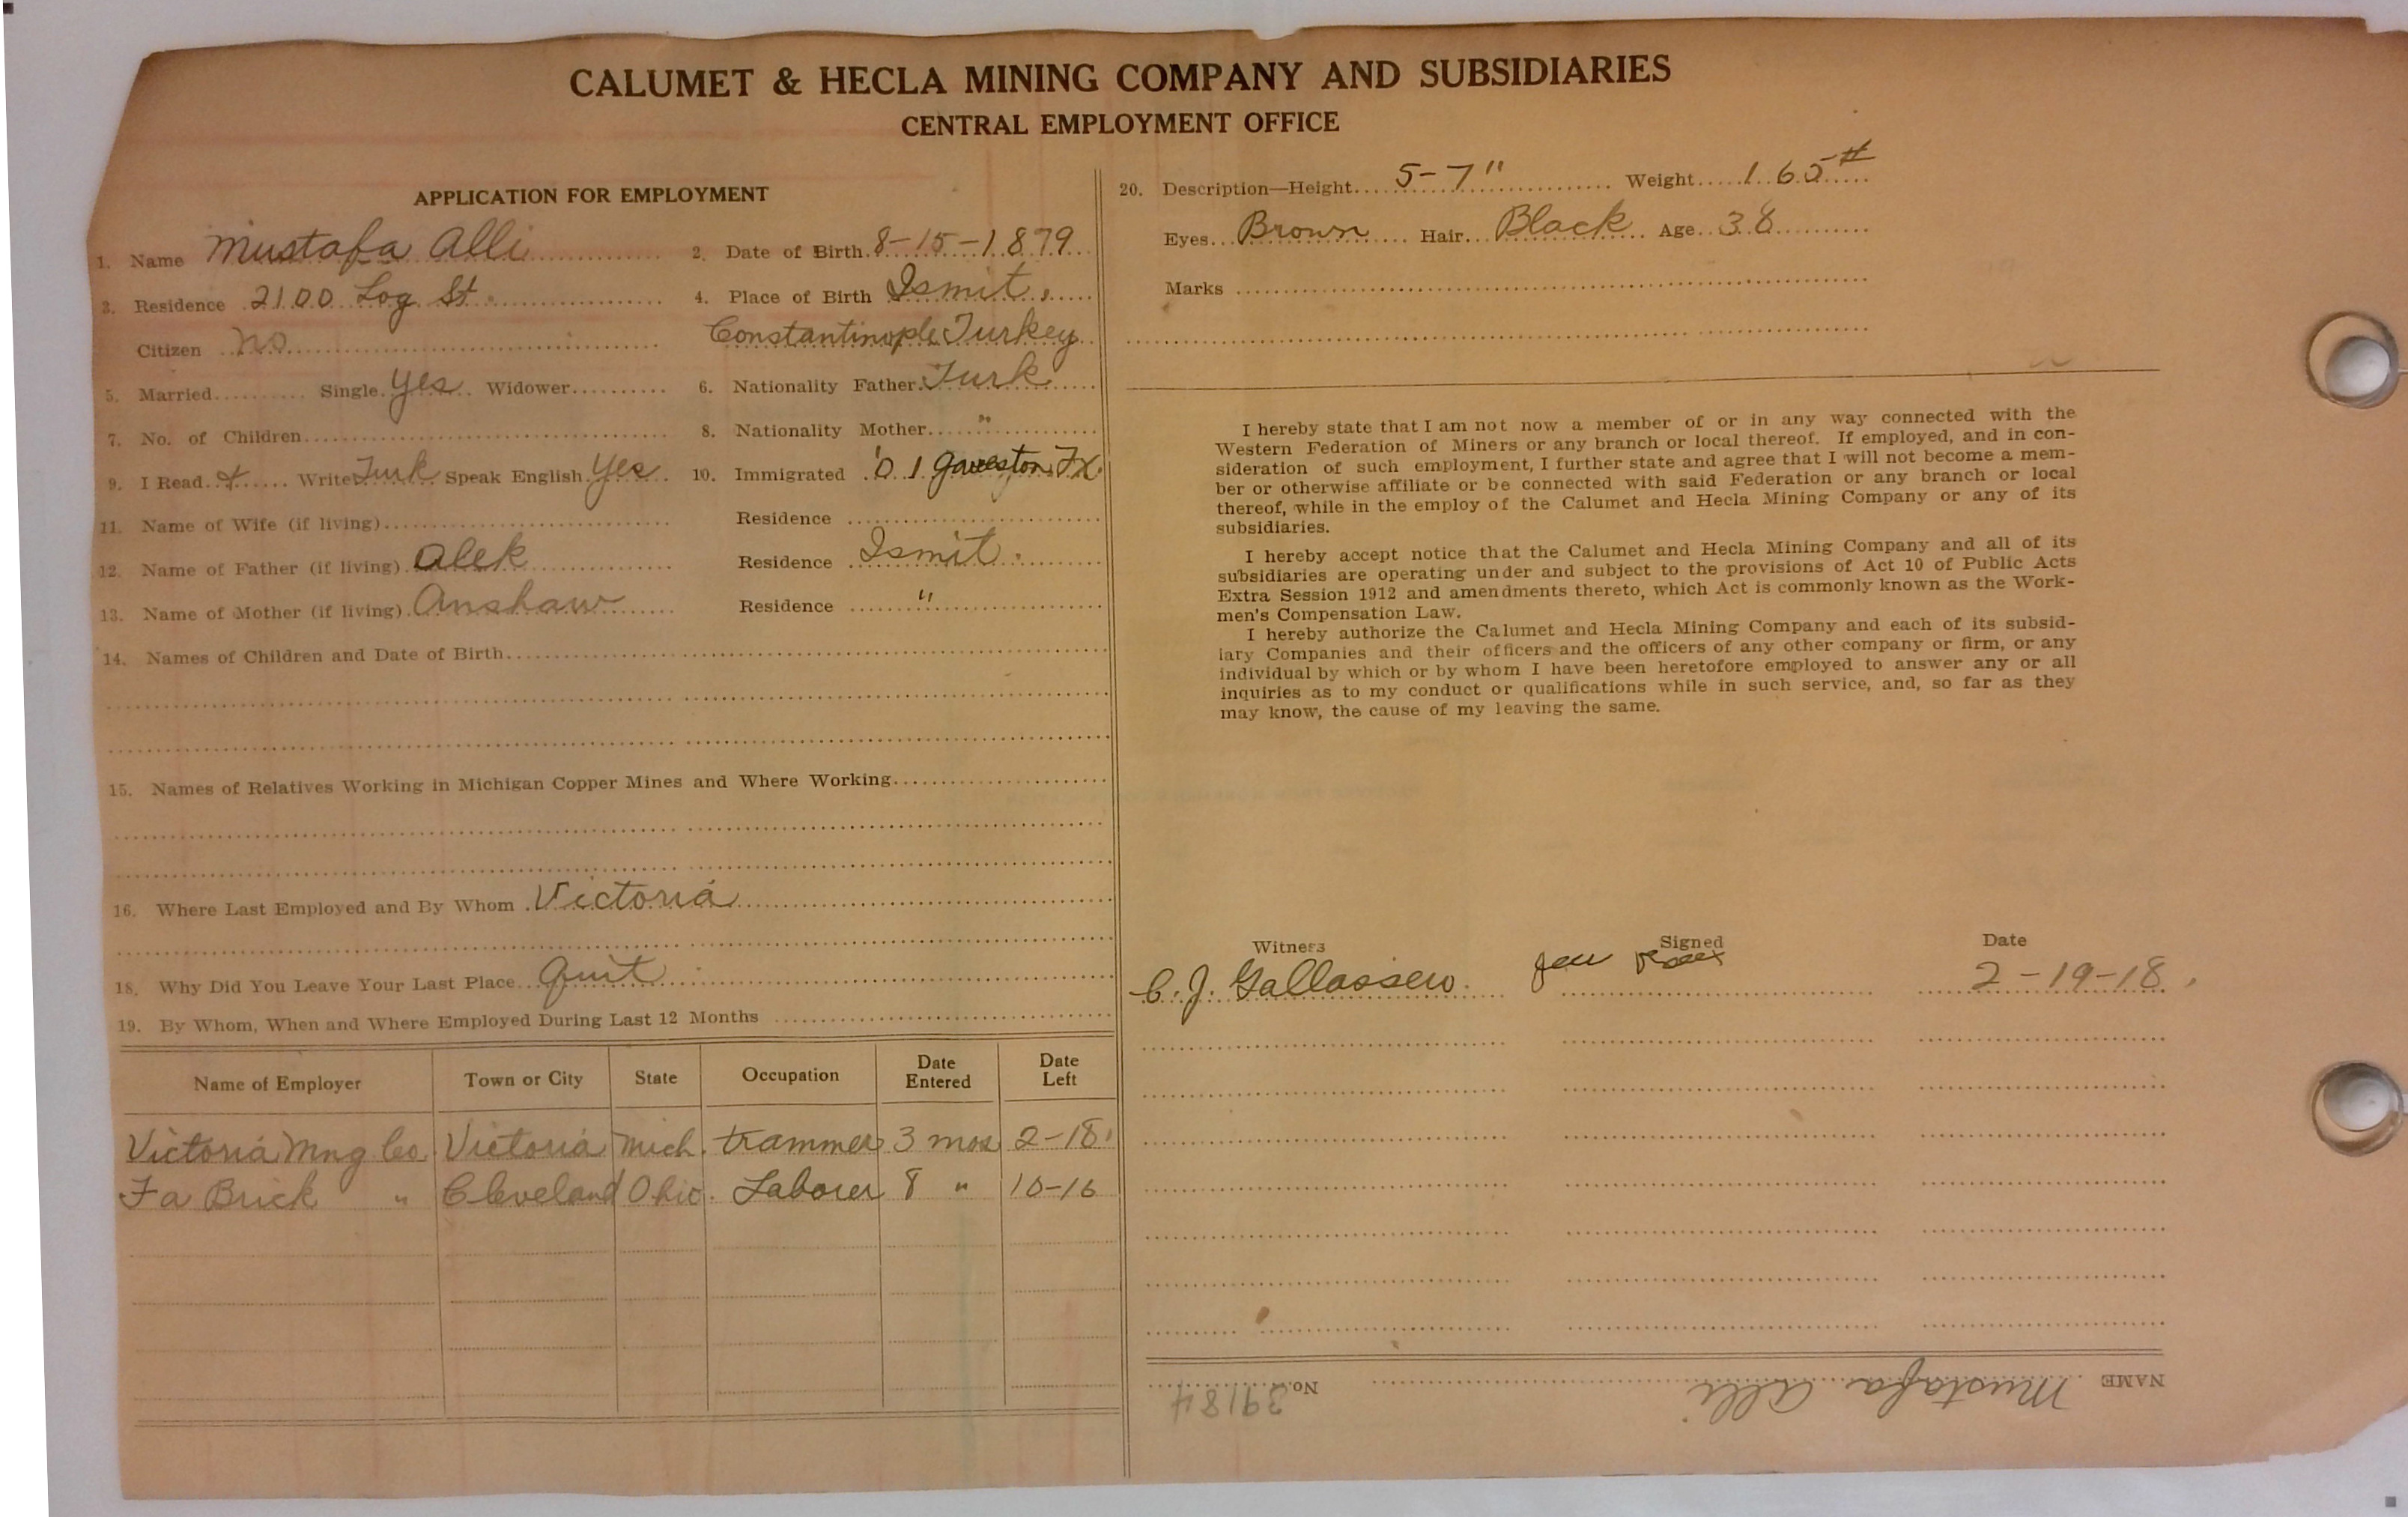 CALUMET & HECLA MINING COMPANY AND SUBSIDIARIES
CENTRAL EMPLOYMENT OFFICE
APPLICATION FOR EMPLOYMENT
1. Name Mustafa Alli
2. Date of Birth 8-15-1879
3. Residence 2100 Log St.
4. Place of Birth Ismit,
Citizen no
Constantinople Turkey
5. Married Single yes Widower
6. Nationality Father Turk
7. No. of Children
8. Nationality Mother "
9. I Read & Write Turk Speak English Yes
10. Immigrated '01 Gaveston Tx.
11. Name of Wife (if living)
Residence
12. Name of Father (if living) Alek
Residence Ismit.
13. Name of Mother (if living) Anshaw
Residence "
14. Names of Children and Date of Birth
15. Names of Relatives Working in Michigan Copper Mines and Where Working
16. Where Last Employed and By Whom Victoria
18. Why Did You Leave Your Last Place Quit
19. By Whom, When and Where Employed During Last 12 Months
Name of Employer Town or City State Occupation Date Entered Date Left
Victoria Mng Co. Victoria Mich. trammer 3 mos 2-18
Fa Brick " Cleveland Ohio. Laborer 8 " 10-16
20. Description—Height 5-7" Weight 165#
Eyes Brown Hair Black Age 38
Marks
I hereby state that I am not now a member of or in any way connected with the
Western Federation of Miners or any branch or local thereof. If employed, and in con-
sideration of such employment, I further state and agree that I will not become a mem-
ber or otherwise affiliate or be connected with said Federation or any branch or local
thereof, while in the employ of the Calumet and Hecla Mining Company or any of its
subsidiaries.
I hereby accept notice that the Calumet and Hecla Mining Company and all of its
subsidiaries are operating under and subject to the provisions of Act 10 of Public Acts
Extra Session 1912 and amendments thereto, which Act is commonly known as the Work-
men's Compensation Law.
I hereby authorize the Calumet and Hecla Mining Company and each of its subsid-
iary Companies and their officers and the officers of any other company or firm, or any
individual by which or by whom I have been heretofore employed to answer any or all
inquiries as to my conduct or qualifications while in such service, and, so far as they
may know, the cause of my leaving the same.
Witness Signed Date
C. J. Gallassero. 2-19-18.
NAME Mustafa Alli No. 39184